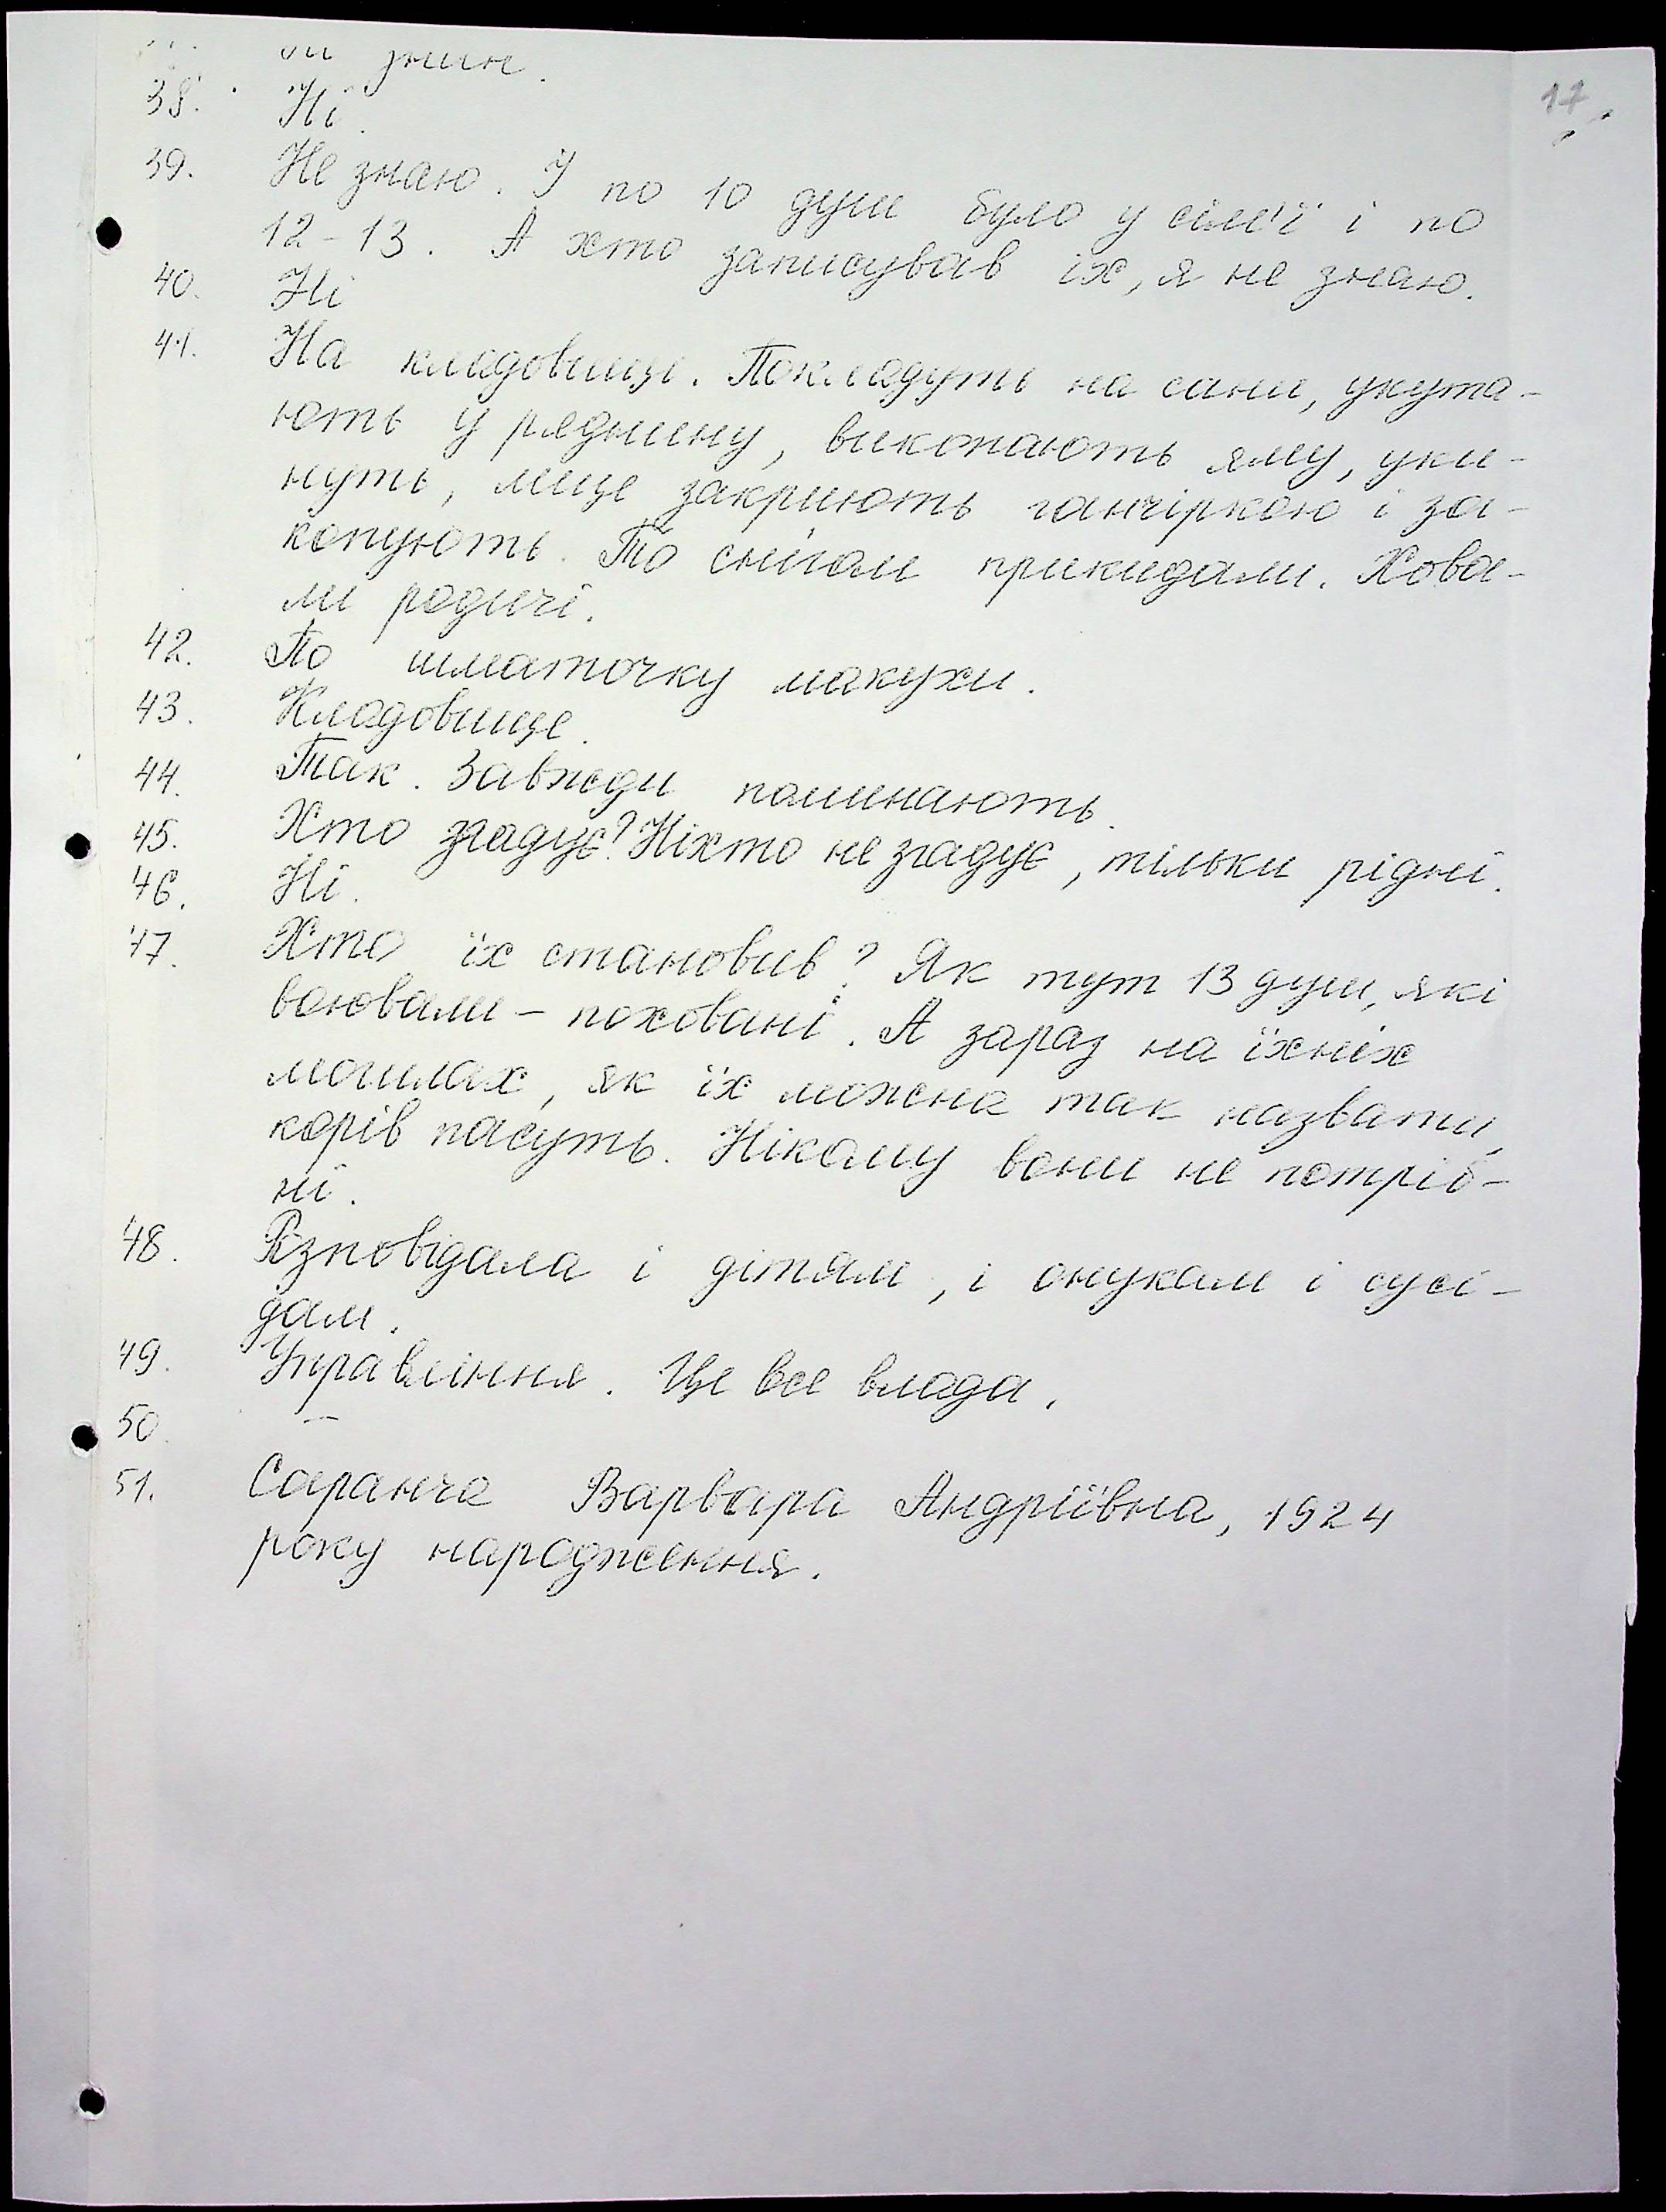 17
38. Ні.
39. Не знаю. І по 10 душ було у сім'ї і по
12-13. А хто записував їх, я не знаю.
40. Ні
41. На кладовищі. Покладуть на сани, укута-
ють у ряднину, викопають яму, уки-
нуть, лице закриють ганчіркою і за-
копують. То снігом прикидали. Хова-
ли родичі.
42. По шматочку макухи.
43. Кладовище.
44. Так. Завжди поминають.
45. Хто згадує? Ніхто не згадує, тільки рідні.
46. Ні.
47. Хто їх становив? Як тут 13 душ, які
воювали - поховані. А зараз на їхніх
могилах, як їх можна так назвати,
корів пасуть. Нікому вони не потріб-
ні.
48. Розповідала і дітям, і онукам і сусі-
дам.
49. Управління. Це все влада.
50. –
51. Саранча Варвара Андріївна, 1924
року народження.